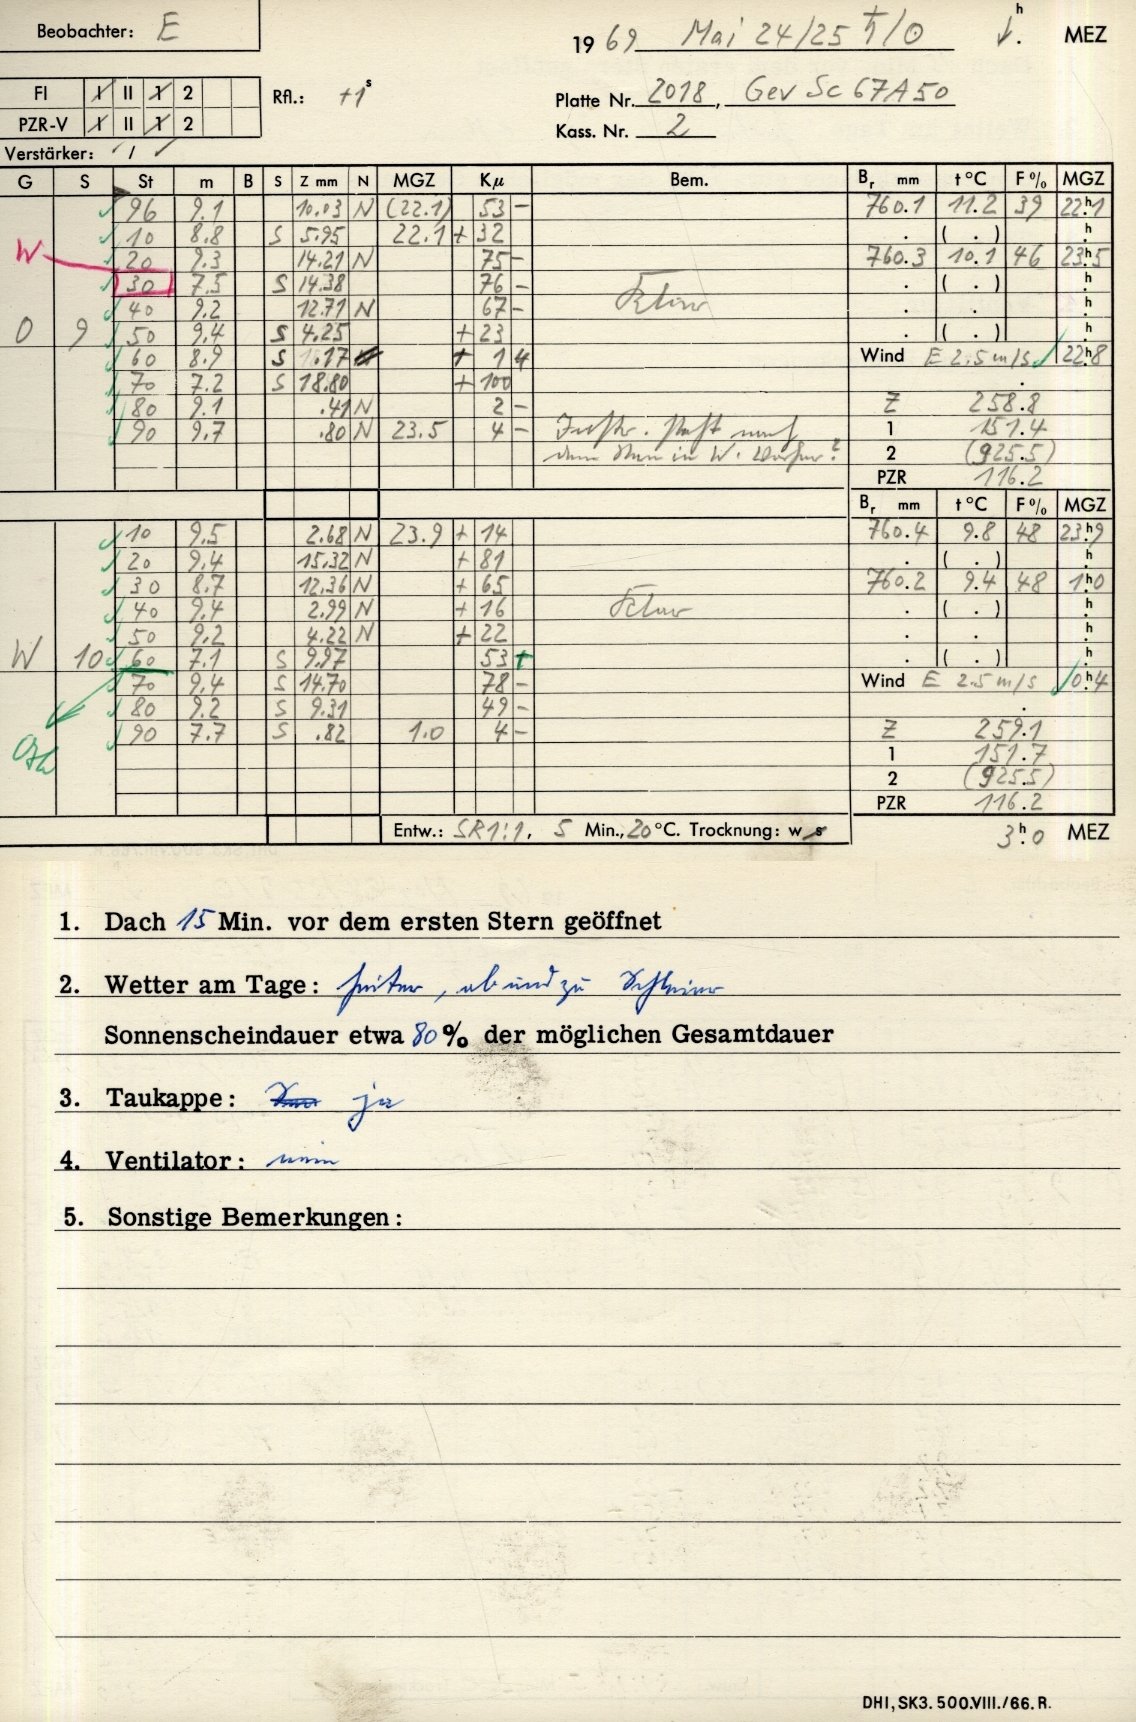 Beobachter: E
19 69 Mai 24/25 ♄/☉ h . MEZ
FI I II 1 2 Rfl.: +1s
Platte Nr. 2018, Gev Sc 67A50
PZR-V I II 1 2
Kass. Nr. 2
Verstärker: /
G S St m B S Z mm N MGZ Kμ Bem. Br mm t °C F % MGZ
96 9.1 10.03 N (22.1) 53 - 760.1 11.2 39 22h1
10 8.8 S 5.95 22.1 + 32 . ( . ) h
W 20 9.3 14.21 N 75 - 760.3 10.1 46 23h5
30 7.5 S 14.38 76 - Klar . ( . ) h
40 9.2 12.71 N 67 - . . h
O 9 50 9.4 S 4.25 + 23 . ( . ) h
60 8.9 S .17 + 1 Wind E 2.5 m/s 22h8
70 7.2 S 18.80 + 100 .
80 9.1 .41 N 2 - Z 258.8
90 9.7 .80 N 23.5 4 - 1 151.4
dem Stern in W. Vorher? 2 (925.5)
PZR 116.2
Br mm t °C F % MGZ
10 9.5 2.68 N 23.9 + 14 760.4 9.8 48 23h9
20 9.4 15.32 N + 81 . ( . ) h
30 8.7 12.36 N + 65 760.2 9.4 48 1h0
40 9.4 2.99 N + 16 Klar . ( . ) h
50 9.2 4.22 N + 22 . . h
W 10 60 7.1 S 9.97 53 + . ( . ) h
70 9.4 S 14.70 78 - Wind E 2.5 m/s 0h4
80 9.2 S 9.31 49 - .
90 7.7 S .82 1.0 4 - Z 259.1
1 151.7
2 (925.5)
PZR 116.2
Entw.: SR1:1, 5 Min., 20 °C. Trocknung: w s 3h0 MEZ
1. Dach 15 Min. vor dem ersten Stern geöffnet
2. Wetter am Tage: heiter, ab und zu Schleier
Sonnenscheindauer etwa 80 % der möglichen Gesamtdauer
3. Taukappe: ja
4. Ventilator: nein
5. Sonstige Bemerkungen:
DHI, SK3. 500.VIII./66. R.